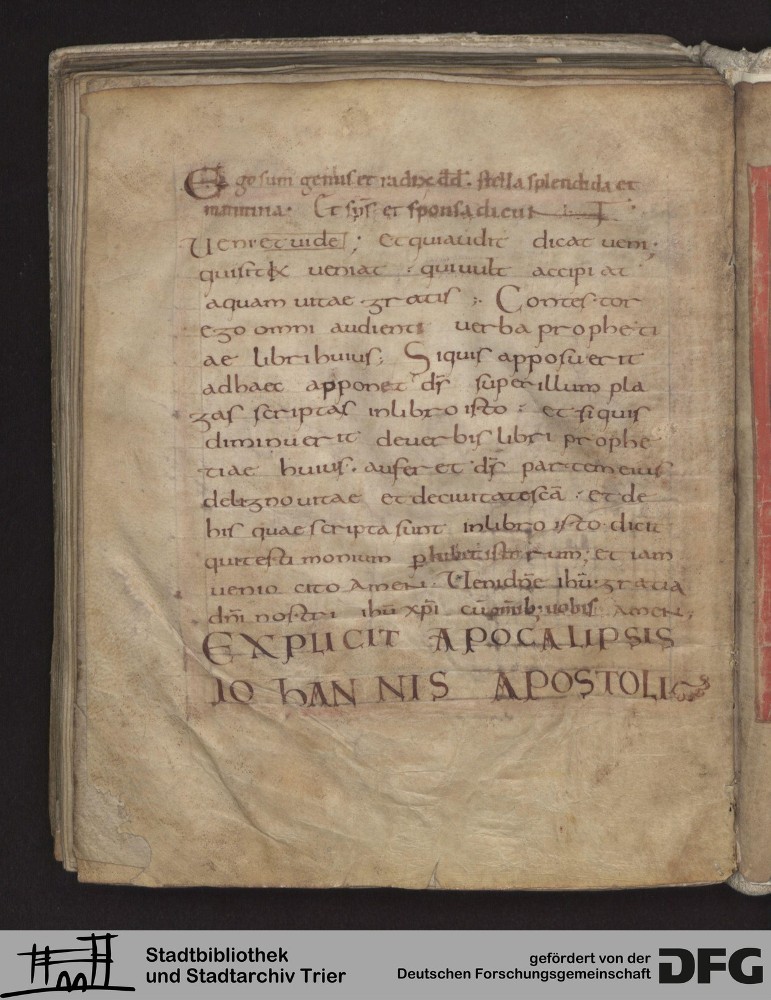 Ego sum genus et radix dd̄. stella splendida et
matutina. Et sp̄s et sponsa dicunt
Veni et uide; et qui audit dicat ueni;
qui sitit ueniat; qui uult accipiat
aquam uitae gratis; Contestor
ego omni audienti uerba propheti
ae libri huius; Si quis apposuerit
ad haec apponet ds̄ super illum pla
gas scriptas in libro isto; et si quis
diminuerit de uerbis libri prophe
tiae huius. auferet ds̄ partem eius
de ligno uitae et de ciuitate scā. et de
his quae scripta sunt in libro isto. dicit
qui testimonium perhibet istorum; et iam
uenio cito Amen. Veni dn̄e ihū. gratia
dn̄i nostri ihū xp̄i cū omnib; uobis Amen;
EXPLICIT APOCALIPSIS
IOHANNIS APOSTOLI
Stadtbibliothek
und Stadtarchiv Trier
gefördert von der
Deutschen Forschungsgemeinschaft
DFG